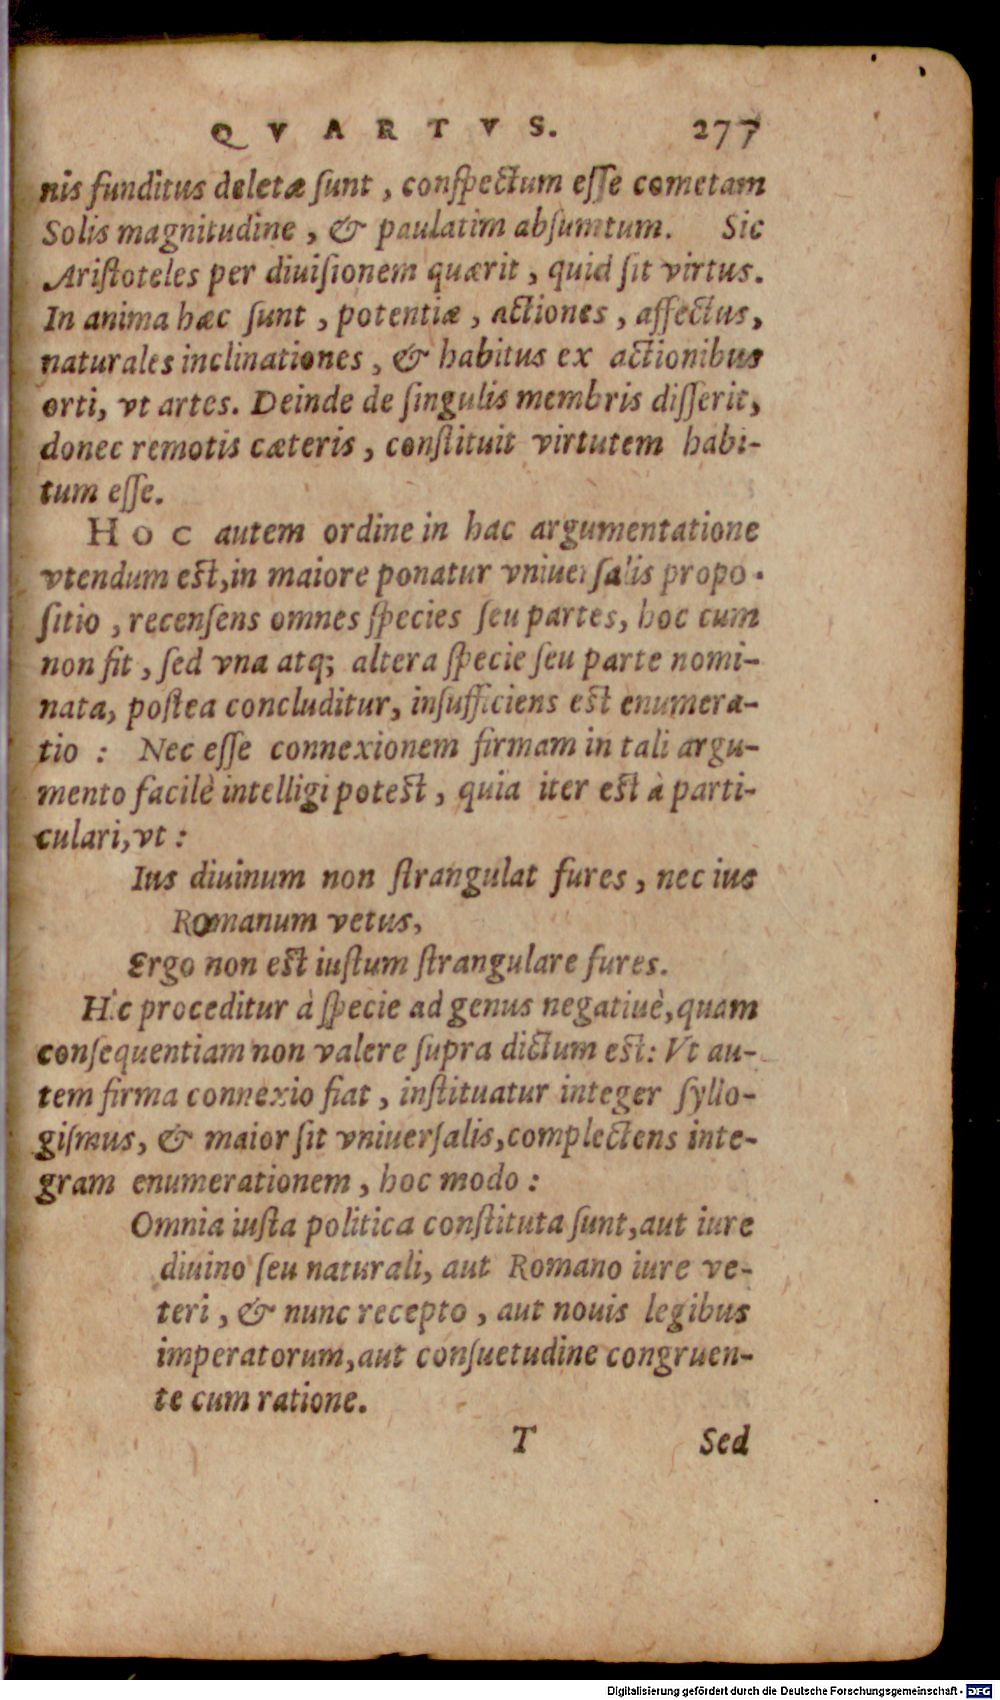 QVARTVS. 277
nis funditus deletæ ſunt, conſpectum eſſe cometam
Solis magnitudine, & paulatim abſumtum. Sic
Ariſtoteles per diuiſionem quærit, quid ſit virtus.
In anima hæc ſunt, potentiæ, actiones, affectus,
naturales inclinationes, & habitus ex actionibus
orti, vt artes. Deinde de ſingulis membris diſſerit,
donec remotis cæteris, conſtituit virtutem habi-
tum eſſe.
Hoc autem ordine in hac argumentatione
vtendum eſt, in maiore ponatur vniuerſalis propo-
ſitio, recenſens omnes ſpecies ſeu partes, hoc cum
non fit, ſed vna atq; altera ſpecie ſeu parte nomi-
nata, poſtea concluditur, inſufficiens eſt enumera-
tio: Nec eſſe connexionem firmam in tali argu-
mento facilè intelligi poteſt, quia iter eſt à parti-
culari, vt:
Ius diuinum non ſtrangulat fures, nec ius
Romanum vetus,
Ergo non eſt iuſtum ſtrangulare fures.
Hîc proceditur à ſpecie ad genus negatiuè, quam
conſequentiam non valere ſupra dictum eſt: Vt au-
tem firma connexio fiat, inſtituatur integer ſyllo-
giſmus, & maior ſit vniuerſalis, complectens inte-
gram enumerationem, hoc modo:
Omnia iuſta politica conſtituta ſunt, aut iure
diuino ſeu naturali, aut Romano iure ve-
teri, & nunc recepto, aut nouis legibus
imperatorum, aut conſuetudine congruen-
te cum ratione.
T Sed
Digitalisierung gefördert durch die Deutsche Forschungsgemeinschaft - DFG